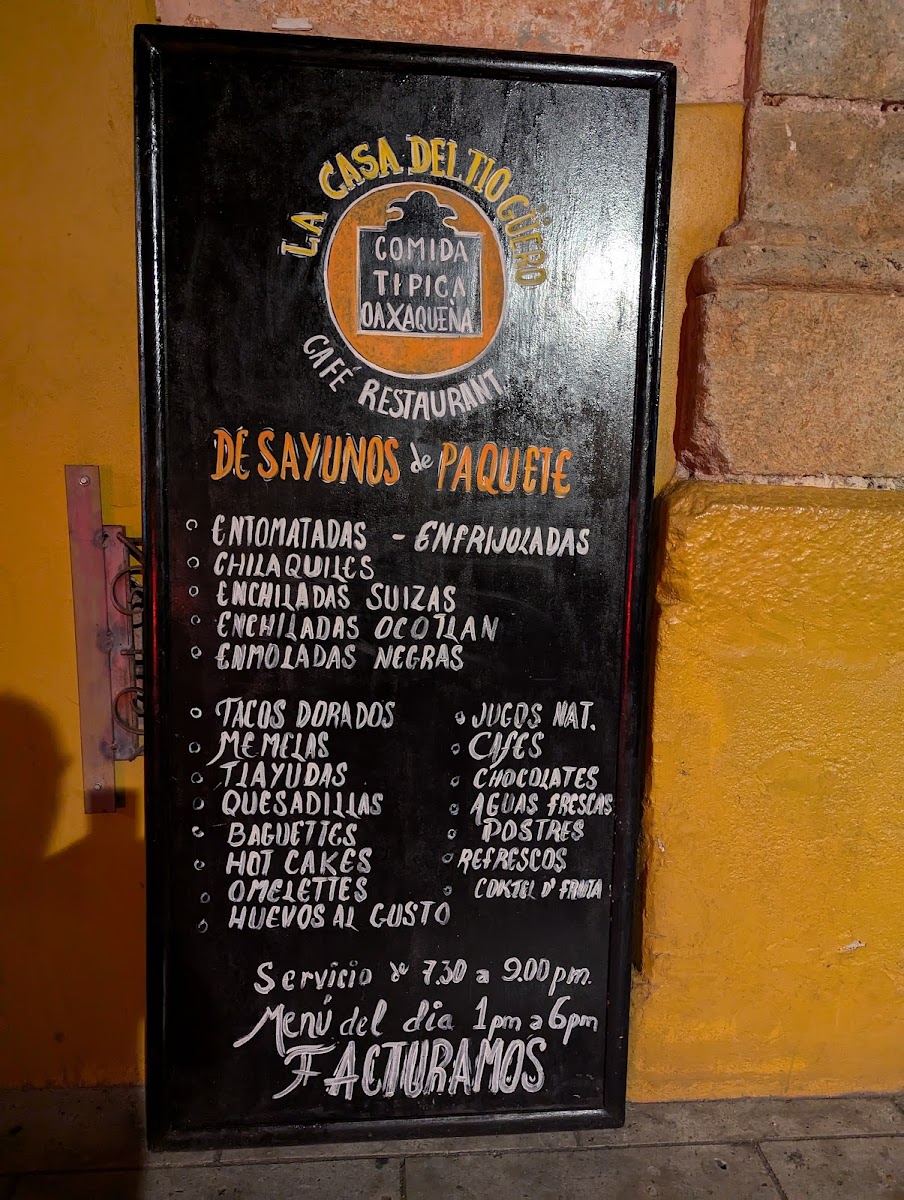 LA CASA DEL TIO GÜERO
COMIDA
TIPICA
OAXAQUEÑA
CAFÉ RESTAURANT
DESAYUNOS de PAQUETE
ENTOMATADAS - ENFRIJOLADAS
CHILAQUILES
ENCHILADAS SUIZAS
ENCHILADAS OCOTLAN
ENMOLADAS NEGRAS
TACOS DORADOS
MEMELAS
TLAYUDAS
QUESADILLAS
BAGUETTES
HOT CAKES
OMELETTES
HUEVOS AL GUSTO
JUGOS NAT.
CAFES
CHOCOLATES
AGUAS FRESCAS
POSTRES
REFRESCOS
COKTEL D' FRUTA
Servicio de 7.30 a 9.00 pm.
Menú del dia 1pm a 6pm
FACTURAMOS